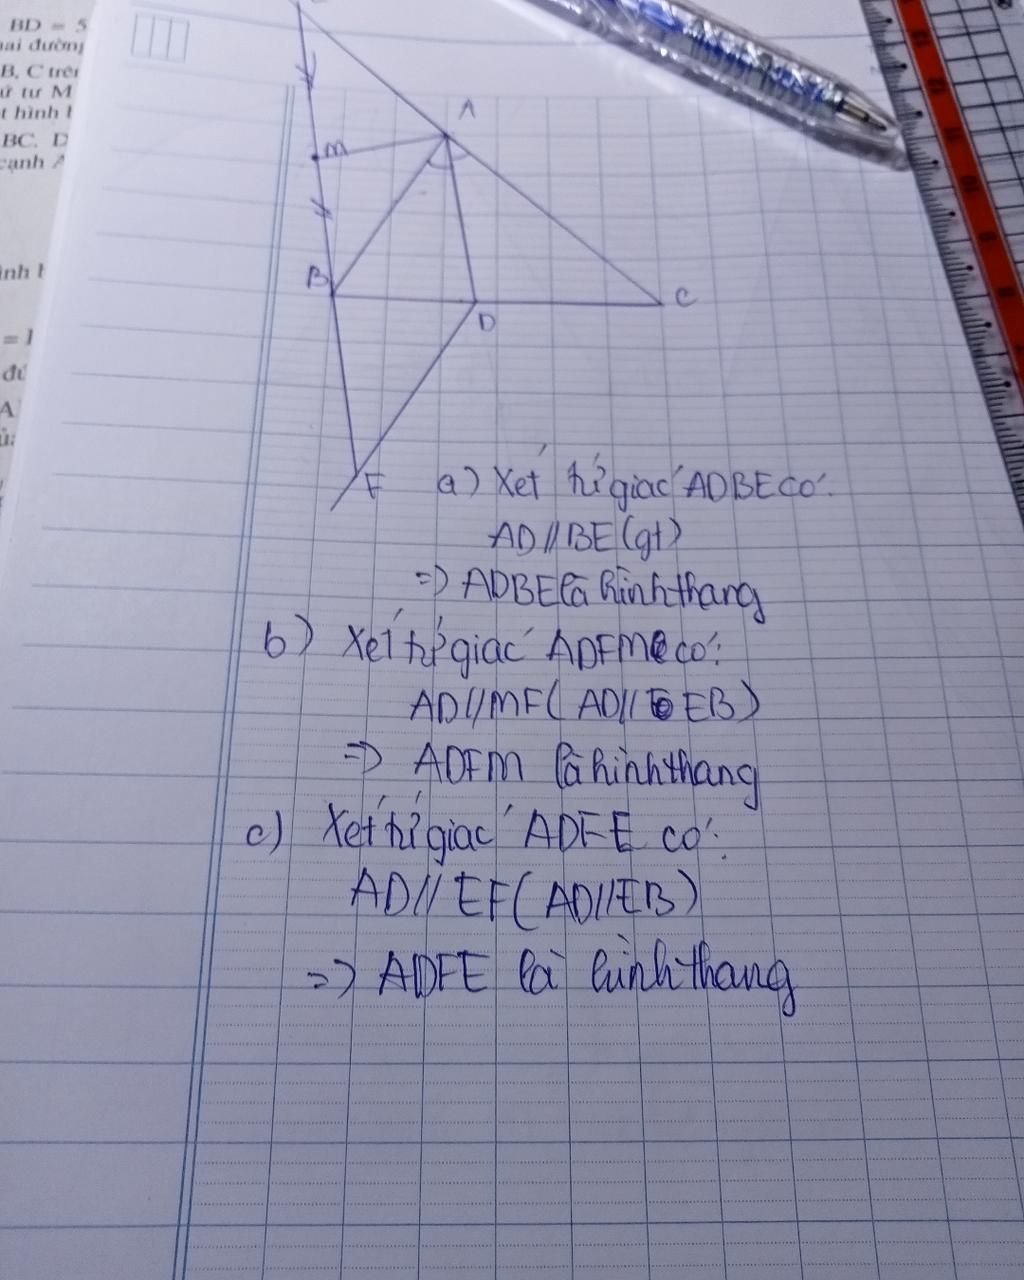 BD = 5
B, C trên
ứ tư M
BC. D
cạnh A
A
M
B
D
C
F
a) Xét tứ giác ADBE có:
AD // BE (gt)
=> ADBE là hình thang
b) Xét tứ giác ADFM có:
AD // MF ( AD // EB )
=> ADFM là hình thang
c) Xét tứ giác ADFE có:
AD // EF ( AD // EB )
=> ADFE là hình thang